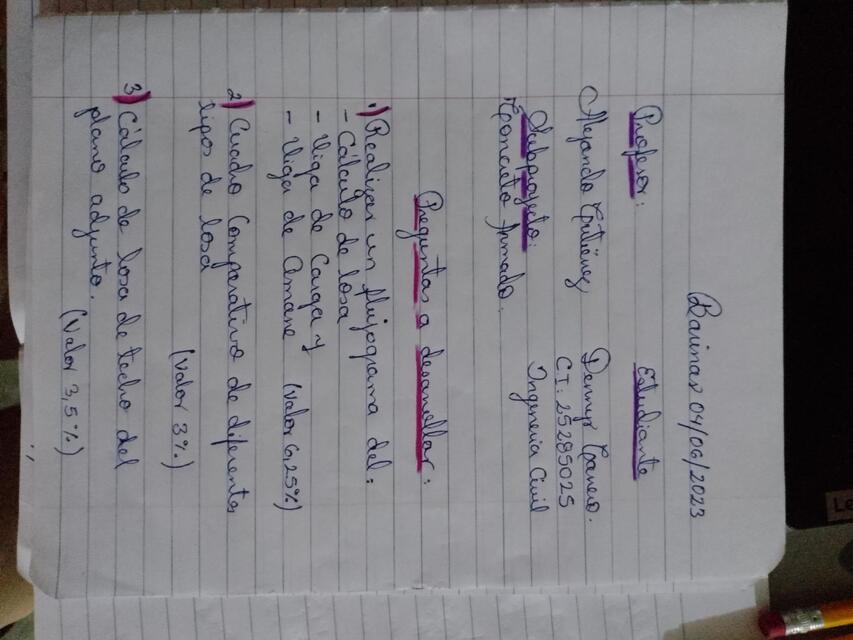 Barinas 04/06/2023
Profesor: Estudiante
Alejando Gutiérrez Dennys
CI: 25285025
Subproyecto: Ingeneria Civil
Concreto Armado.
Preguntas a desarrollar:
1) Realizar un flujograma del:
- Cálculo de losa
- Viga de Carga y
- Viga de Amarre (Valor 6,25%)
2) Cuadro Comparativo de diferentes
tipos de losa
(Valor 3%.)
3) Cálculo de losa de techo del
plano adjunto.
(Valor 3,5%.)
Le